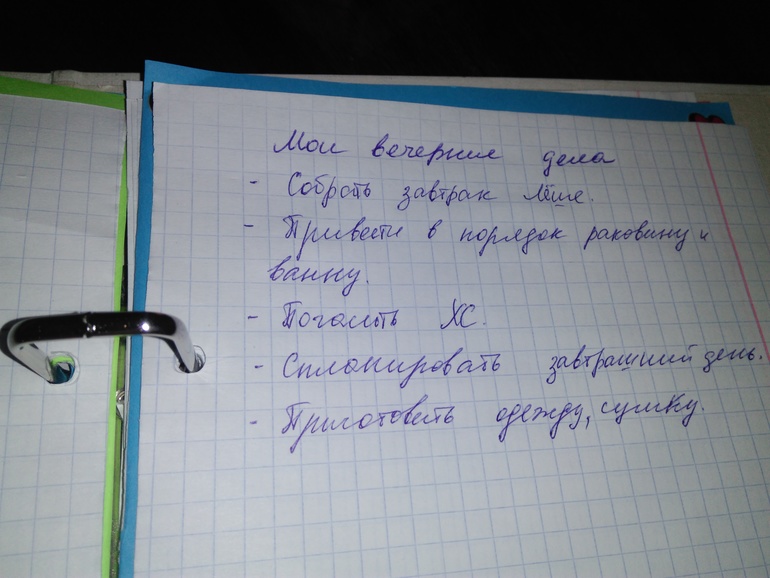 Мои вечерние дела
- Собрать завтрак Лёше.
- Привести в порядок раковину и
ванну.
- Погасить ХС.
- Спланировать завтрашний день.
- Приготовить одежду, сумку.